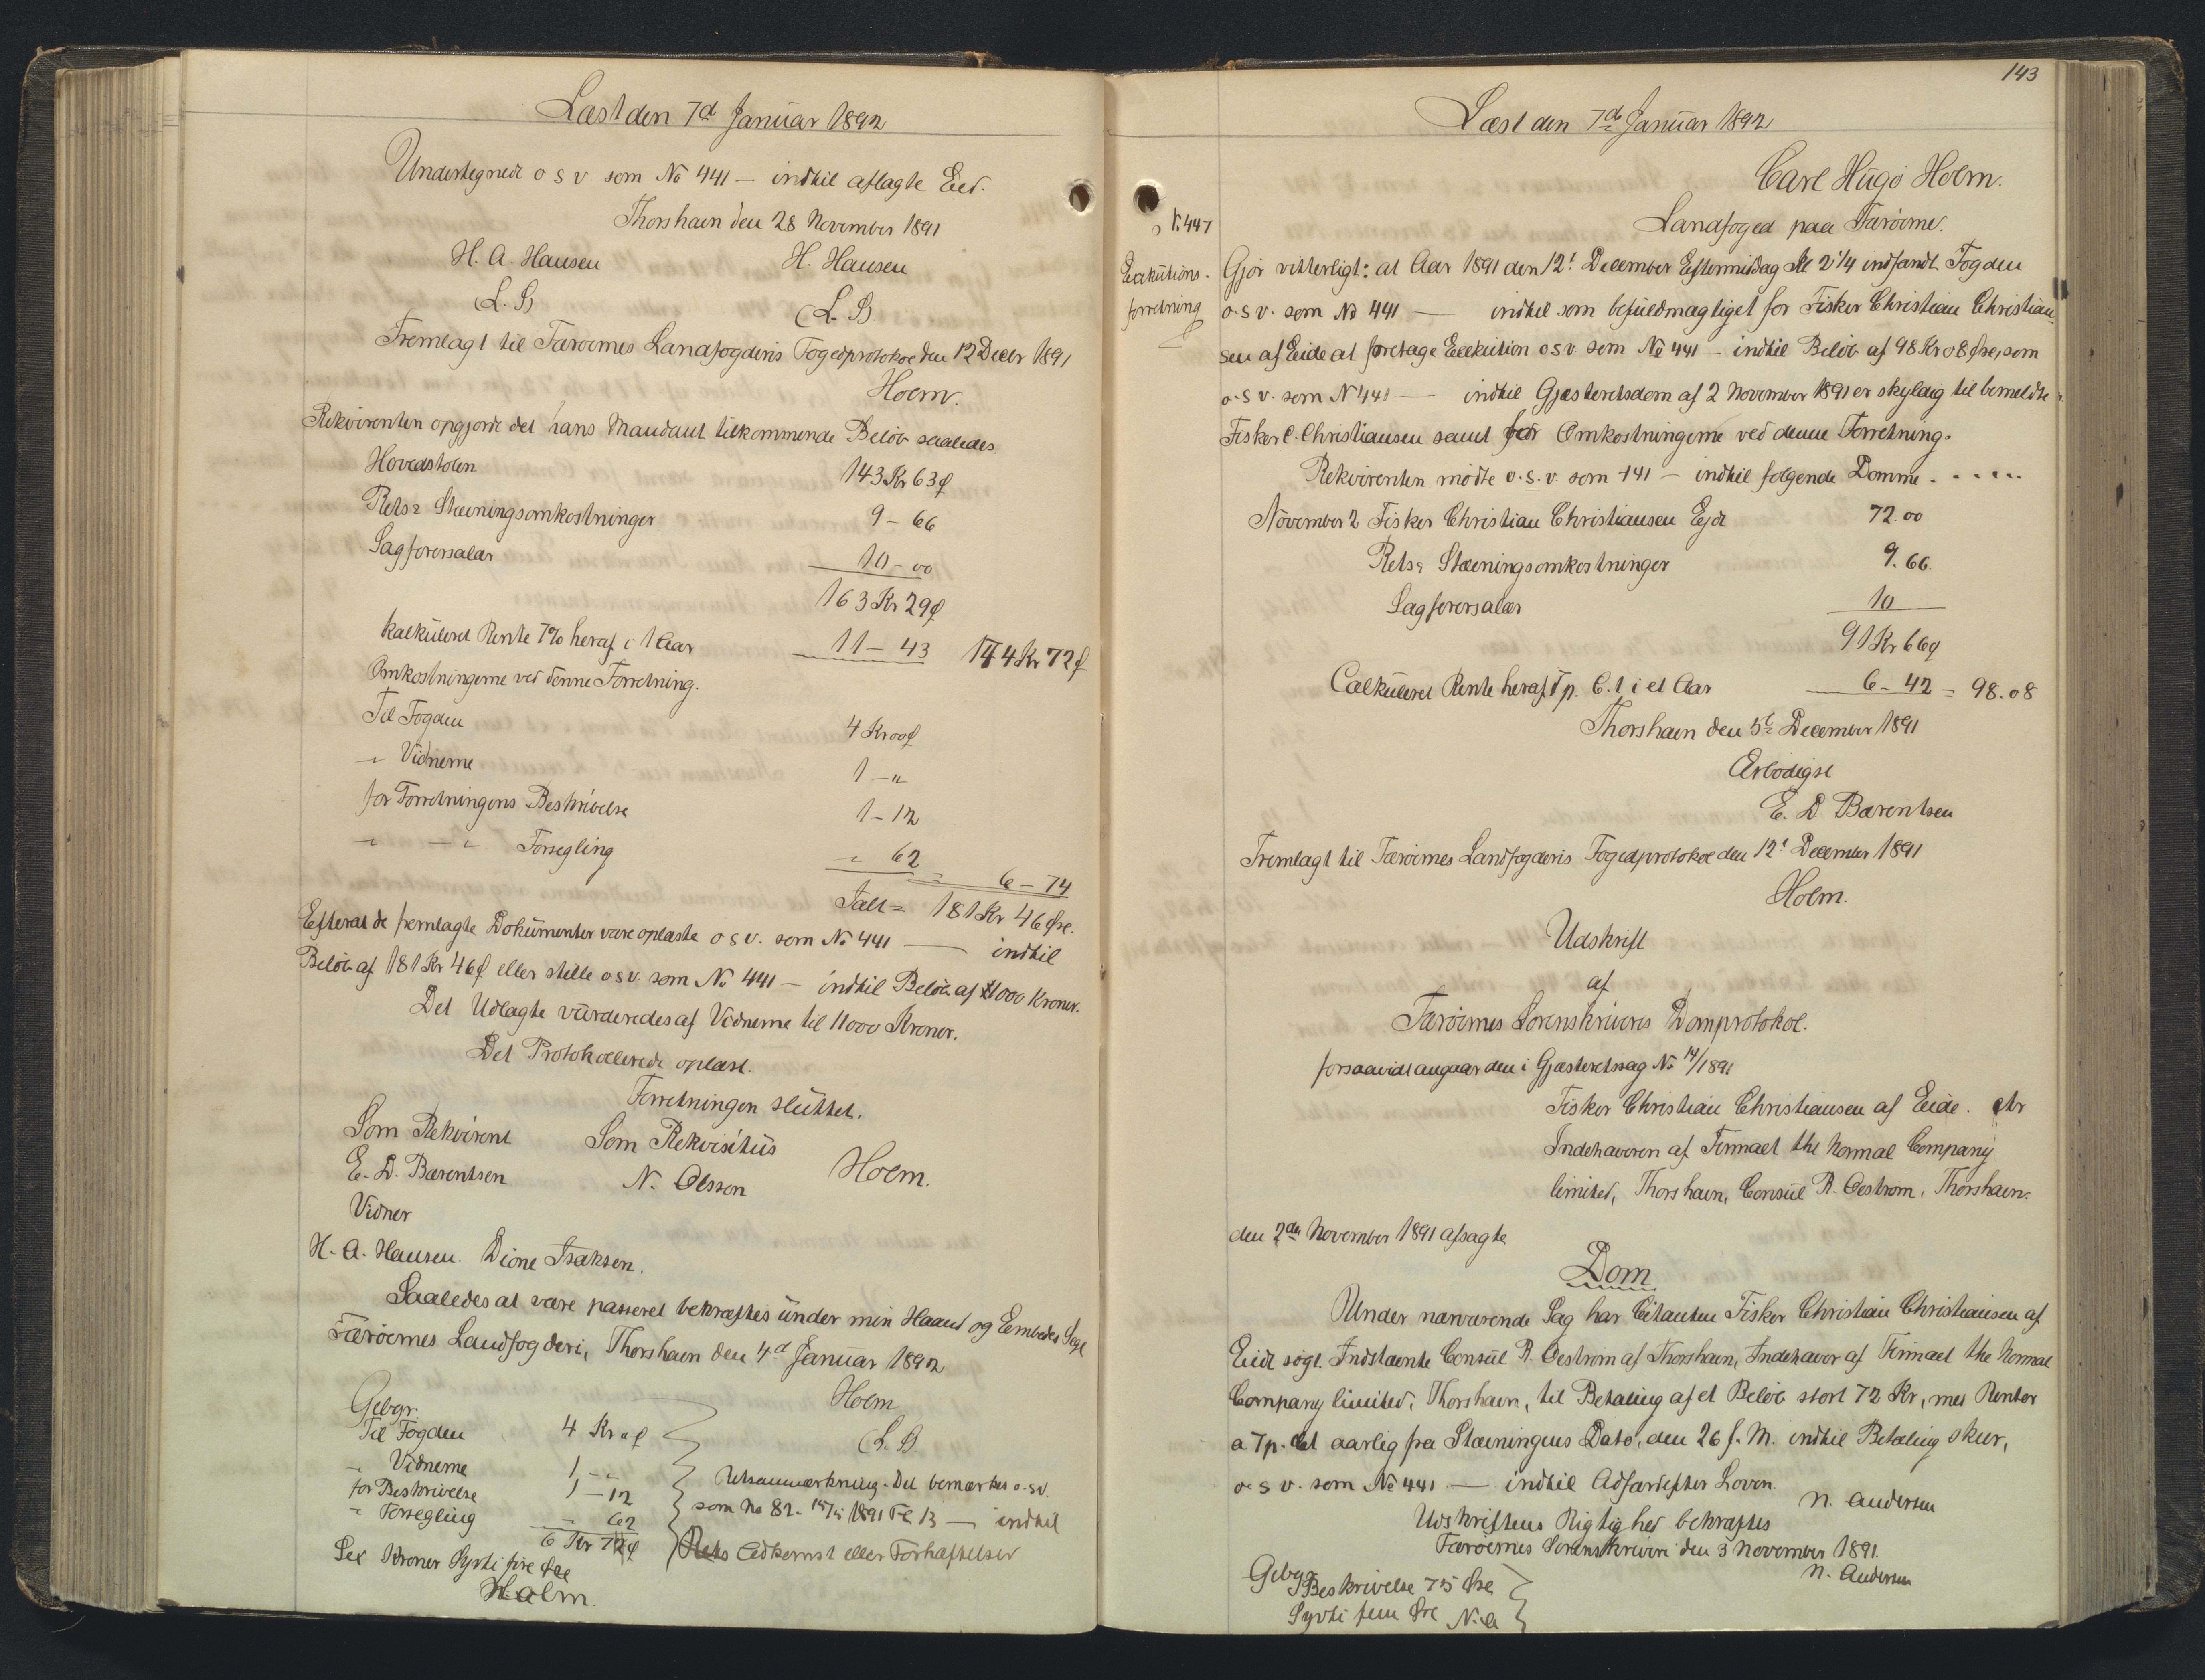 Læst den 7d Januar 1892
Undertegnede o s v. som No 441 — indtil aflagte Eed.
Thorshavn den 28 November 1891
H. A. Hansen H. Hansen
(L. S) (L. S).
Fremlagt til Færøernes Landfogderis Fogedprotokol den 12 Decbr 1891
Holm.
Rekvirenten opgjorde det hans Mandant tilkommende Beløb saaledes.
Hovedstolen 143 Kr 63 ø
Rets & Stævningsomkostninger 9 - 66
Sagførersalær 10 - 00
163 Kr 29 ø
Kalkuleret Rente 7% heraf i 1 Aar 11 - 43 174 Kr 72 ø
Omkostningerne ved denne Forretning.
Til Fogden 4 Kr 00 ø
" Vidnerne 1 - "
for Forretningens Beskrivelse 1 - 12
" — " Forsegling " 62 = 6 - 74
Ialt = 181 Kr 46 Øre.
Efterat de fremlagte Dokumenter vare oplæste o s v. som No 441 — indtil
Beløb af 181 Kr 46 ø eller stille o s v. som No 441 — indtil Beløb af 11000 Kroner.
Det Udlagte vurderedes af Vidnerne til 11000 Kroner.
Det Protokollerede oplæst.
Forretningen sluttet.
Som Rekvirent Som Rekvisitus
E. D. Bærentsen N. Olsson Holm.
Vidner
H. A. Hansen. Dione Isaksen.
Saaledes at være passeret bekræftes under min Haand og Embeds Segl
Færøernes Landfogderi, Thorshavn den 4d Januar 1892
Holm
(L. S.
Gebyr.
Til Fogden 4 Kr " ø
" Vidnerne 1 - "
for Beskrivelse 1 - 12
" Forsegling " 62
6 Kr 74 ø
Sex Kroner Syvti fire Øre
Holm.
Retsanmærkning. Det bemærkes o. s v.
som No 82 - 15/5 1891 Fl B — indtil
Adkomst eller Forhæftelser
143
Læst den 7de Januar 1892
Carl Hugo Holm.
Landfoged paa Færøerne.
No 447
Exekutions-
forretning
Gjør vitterligt: at Aar 1891 den 12t December Eftermiddag Kl 2 1/4 indfandt Fogden
o. s v. som No 441 — indtil som befuldmægtiget for Fisker Christian Christian-
sen af Eide at foretage Exekution o s v som No 441 — indtil Beløb af 98 Kr 08 Øre, som
o. s v. som No 441 — indtil Gjæsteretsdom af 2 November 1891 er skyldig til bemeldte
Fisker C. Christiansen samt for Omkostningerne ved denne Forretning.
Rekvirenten mødte o. s. v. som 441 — indtil følgende Domme . . . . .
November 2 Fisker Christian Christiansen Ejde 72.00
Rets & Stævningsomkostninger 9.66.
Sagførersalær 10
91 Kr 66 ø
Calkuleret Rente heraf 7 p. C.t i et Aar 6 - 42 = 98.08
Thorshavn den 5t December 1891
Ærbødigst
E. D Bærentsen
Fremlagt til Færøernes Landfogderis Fogedprotokol den 12t December 1891
Holm.
Udskrift
af
Færøernes Sorenskriveris Domprotokol.
forsaavidt angaar den i Gjæsteretssag No 14/1891
Fisker Christian Christiansen af Eide. ctr
Indehaveren af Firmaet the Normal Company
limited, Thorshavn, Consul R. Oestrom, Thorshavn.
den 2den November 1891 afsagte
Dom
Under nærværende Sag har Citanten Fisker Christian Christiansen af
Eide søgt Indstævnte Consul R. Oestrom af Thorshavn, Indehaver af Firmaet the Normal
Company limited, Thorshavn, til Betaling af et Beløb stort 72 Kr, med Renter
a 7 p. Ct aarlig fra Stævningens Dato, den 26 f. M. indtil Betaling skeer,
o. s v. som No 441 — indtil Adfærd efter Loven.
N. Andersen
Udskriftens Rigtighed bekræftes
Færøernes Sorenskriveri den 3 November 1891.
N. Andersen
Gebyr
Beskrivelse 75 Øre
Syvti fem Øre N. A